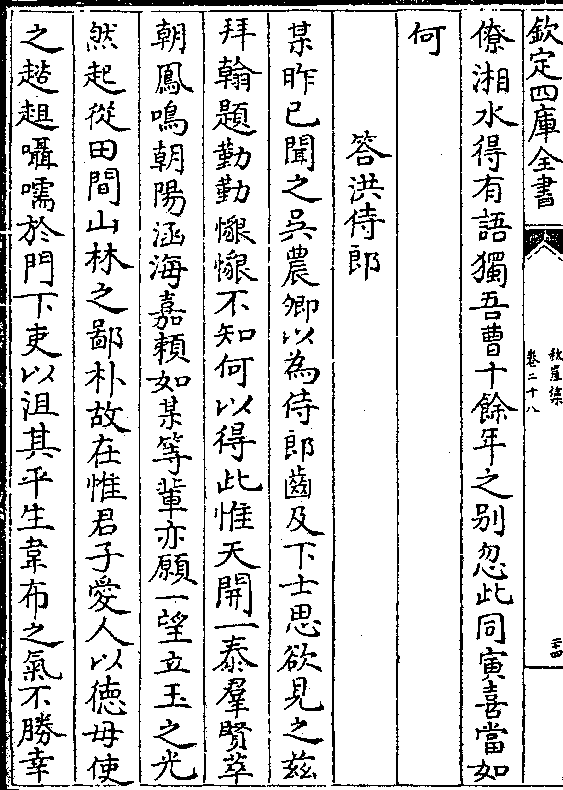 欽定四庫全書
秋崖集
卷二十八
二十四
僚湘水得有語獨吾曹十餘年之别忽此同寅喜當如
何
答洪侍郎
某昨已聞之吳農卿以為侍郎齒及下士思欲見之兹
拜翰題勤勤懇懇不知何以得此惟天開一泰羣賢萃
朝鳳鳴朝陽涵海嘉頼如某等輩亦願一望立玉之光
然起從田間山林之鄙朴故在惟君子愛人以徳毋使
之趦趄囁嚅於門下吏以沮其平生韋布之氣不勝幸